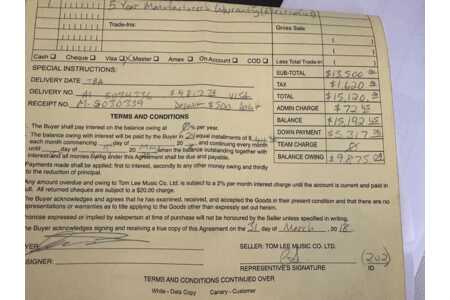 5 Year Manufacturers Warranty
Trade-Ins:
Cash Cheque Visa Master Amex On Account COD
Less Total Trade-in
SPECIAL INSTRUCTIONS:
SUB-TOTAL $13,500.00
DELIVERY DATE TBA
TAX $1,620.00
DELIVERY NO. VISA
TOTAL $15,120.00
RECEIPT NO. M-S070339 Down $500
ADMIN CHARGE $72.45
TERMS AND CONDITIONS
BALANCE $15,192.45
The Buyer shall pay interest on the balance owing at % per year.
DOWN PAYMENT $5,317.45
The balance owing with interest will be paid by the Buyer in 24 equal installments of $
TEAM CHARGE
each month commencing day of 20 and continuing every month
BALANCE OWING $9,875.00
until day of 20 when the balance outstanding together with
interest and all monies owing under this Agreement shall be due and payable.
Payments made shall be applied: first to interest, secondly to any other money owing and thirdly
to the reduction of principal.
Any amount overdue and owing to Tom Lee Music Co. Ltd. is subject to a 2% per month interest charge until the account is current and paid in
full. All returned cheques are subject to a $20.00 charge.
The Buyer acknowledges and agrees that he has examined, received, and accepted the Goods in their present condition and that there are no
representations or warranties as to title applying to the Goods other than expressly set out herein.
expressed or implied by salesperson at time of purchase will not be honoured by the Seller unless specified in writing.
Buyer acknowledges signing and receiving a true copy of this Agreement on the 31 day of March 2018
SELLER: TOM LEE MUSIC CO. LTD.
SIGNER:
(202)
REPRESENTATIVE'S SIGNATURE ID
TERMS AND CONDITIONS CONTINUED OVER
White - Data Copy Canary - Customer